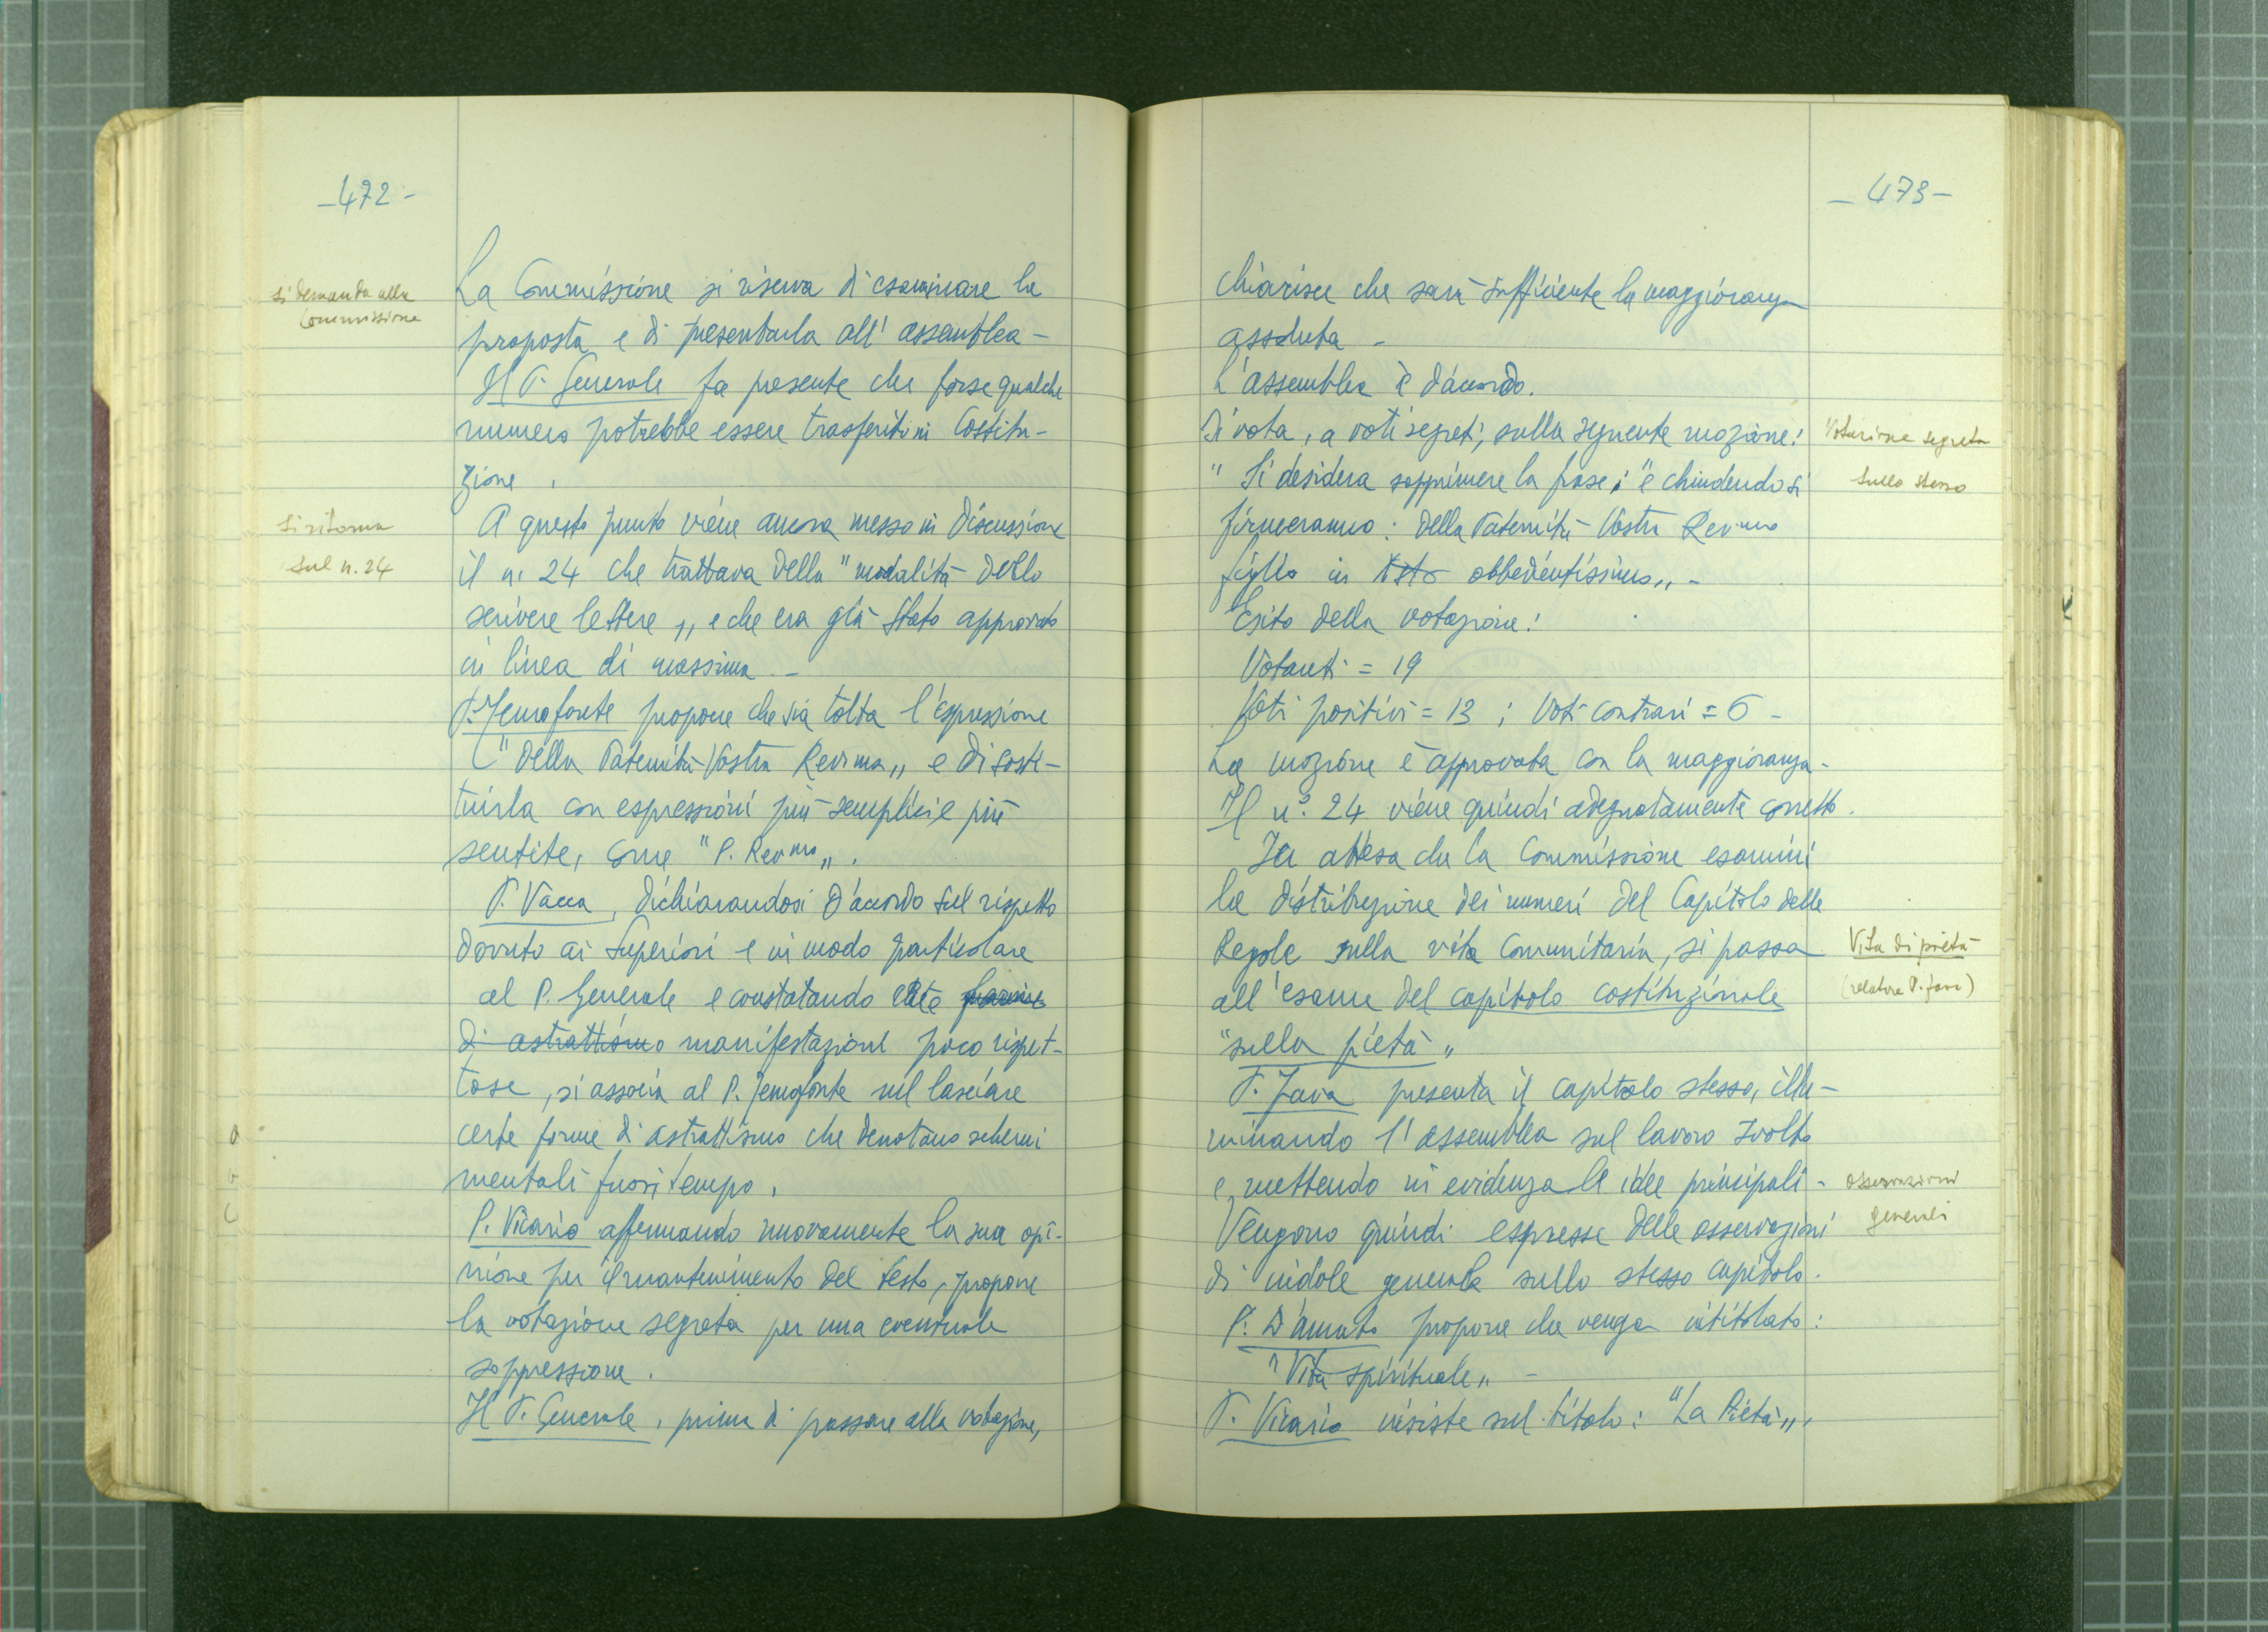 -472-
si demanda alla
Commissione
La Commissione si riserva di esaminare la
proposta e di presentarla all'assemblea-
Il P. Generale fa presente che forse qualche
numero potrebbe essere trasferito in Costitu-
zione.
Si ritorna
sul n. 24
A questo punto viene ancora messo in discussione
il n. 24 che trattava della "modalità dello
scrivere lettere„ e che era già stato approvato
in linea di massima.-
P. Senofonte propone che sia tolta l'espressione
"della Paternità Vostra Rev.ma„ e di sosti-
tuirla con espressioni più semplici e più
sentite, come "P. Rev.mo„.
P. Vacca, dichiarandosi d'accordo sul rispetto
dovuto ai Superiori e in modo particolare
al P. Generale e constatando certe forme
di astrattismo manifestazioni poco rispet-
tose, si associa al P. Senofonte nel lasciare
certe forme di astrattismo che denotano schemi
mentali fuori tempo.
P. Vicario affermando nuovamente la sua opi-
nione per il mantenimento del testo, propone
la votazione segreta per una eventuale
soppressione.
Il P. Generale, prima di passare alla votazione,
-473-
chiarisce che sarà sufficiente la maggioranza
assoluta -
L'assemblea è d'accordo.
Si vota, a voti segreti, sulla seguente mozione:
"Si desidera sopprimere la frase: "e chiudendo si
firmeranno: della Paternità Vostra Rev.ma
figlio in obbedientissimo„-
Votazione segreta
sullo stesso
Esito della votazione:
Votanti = 19
Voti positivi = 13; Voti contrari = 6 -
La mozione è approvata con la maggioranza-
Il n.° 24 viene quindi adeguatamente corretto.
In attesa che la Commissione esamini
la distribuzione dei numeri del Capitolo delle
Regole sulla vita Comunitaria, si passa
all'esame del capitolo costituzionale
"sulla pietà„
Vita di pietà
(relatore P. Fava)
P. Fava presenta il capitolo stesso, illu-
minando l'assemblea sul lavoro svolto
e mettendo in evidenza le idee principali-
Vengono quindi espresse delle osservazioni
di indole generale sullo stesso capitolo.
osservazioni
generali
P. D'Amato propone che venga intitolato:
"Vita spirituale„ -
P. Vicario insiste sul titolo: "La Pietà„.